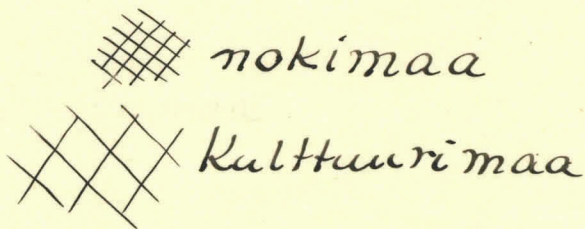 nokimaa
Kulttuurimaa